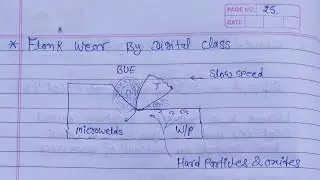 PAGE NO. 25.
DATE
* Flank Wear By Digital Class
BUE
Slow speed
T
Microwelds
W/P
Hard Particles & oxites